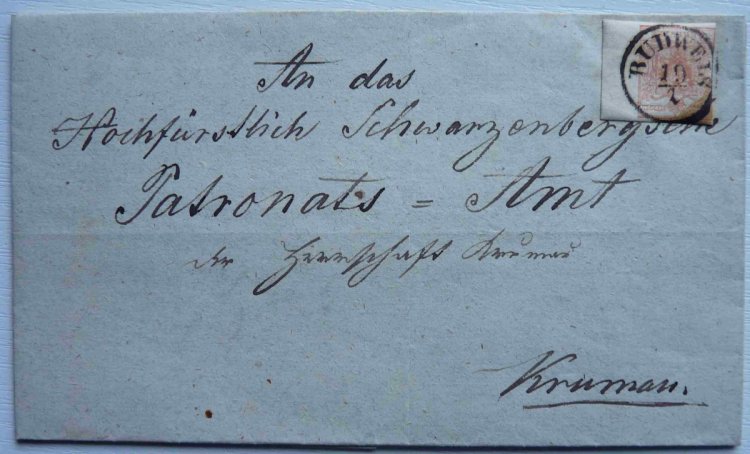 BUDWEIS
19
7
An das
Hochfürstlich Schwarzenbergsche
Patronats = Amt
der Herrschaft Krumau
Krumau.